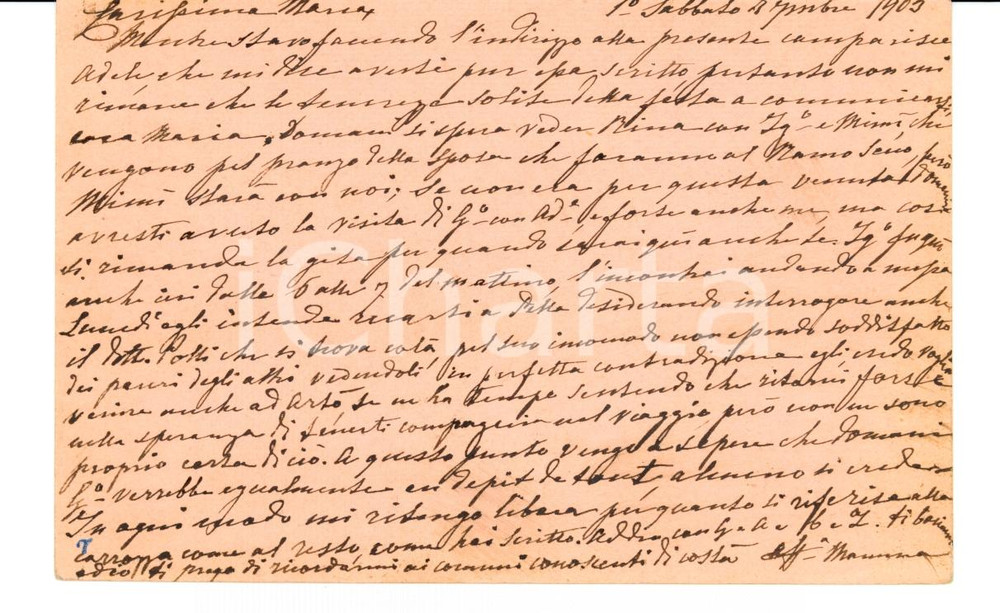 Carissima Maria, 1º Sabbato 8bre 1903
Mentre stavo facendo l'indirizzo alla presente comparisce
Adele che mi dice averti pur essa scritto pertanto non mi
rimane che le tenerezze solite della festa a comunicarti,
cara Maria. Domani si spera veder Rina con Igº e Mimì che
vengono pel pranzo della sposa che faranno al Ramo Secco, però
Mimì starà con noi; se non era per questa venuta domani
avresti avuto la visita di Gº con Adª e forse anche me, ma così
si rimanda la gita per quando sarai qui anche te. Igº fu qui
anche ieri dalle 6 alle 7 del mattino, l'incontrai andando a messa
Lunedì egli intende recarsi a Della desiderando interrogare anche
il dott. Potti che si trova colà, pel suo incomodo non essendo soddisfatto
dei pareri degli altri vedendoli in perfetta contradizione egli credo voglia
venire anche ad Arto, se ne ha tempo sentendo che ritorni forse
nella speranza di tenerti compagnia nel viaggio però non ne sono
proprio certa di ciò. A questo punto vengo a sapere che domani
Gº verrebbe egualmente en depit de tout almeno si crede
In ogni modo mi ritengo libera per quanto si riferisce alla
carrozza come al resto come hai scritto. Addio con G. A e B e Z. ti
addio ti prego di ricordarmi ai comuni conoscenti di costà affª Mamma
iCharta